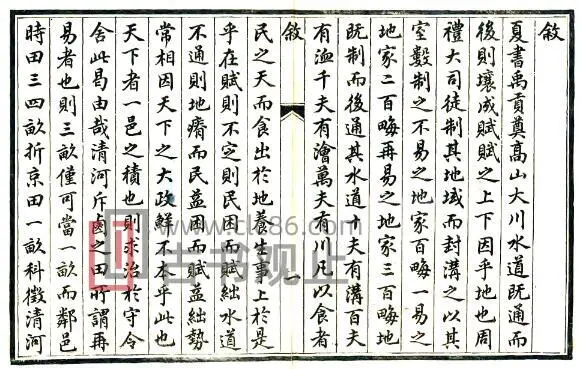 敘
夏書禹貢奠高山大川水道既通而
後則壤成賦賦之上下因乎地也周
禮大司徒制其地域而封溝之以其
室數制之不易之地家百畮一易之
地家二百畮再易之地家三百畮地
既制而後通其水道十夫有溝百夫
有洫千夫有澮萬夫有川凡以食者
敘
一
民之天而食出於地養生事上於是
乎在賦則不定則民困而賦絀水道
不通則地瘠而民益困而賦益絀勢
常相因天下之大政鮮不本乎此也
天下者一邑之積也則求治於守令
舍此曷由哉清河斥鹵之田所謂再
易者也則三畝僅可當一畝而鄰邑
時田三四畝折京田一畝科徵清河
www.clk86.com
古书观止